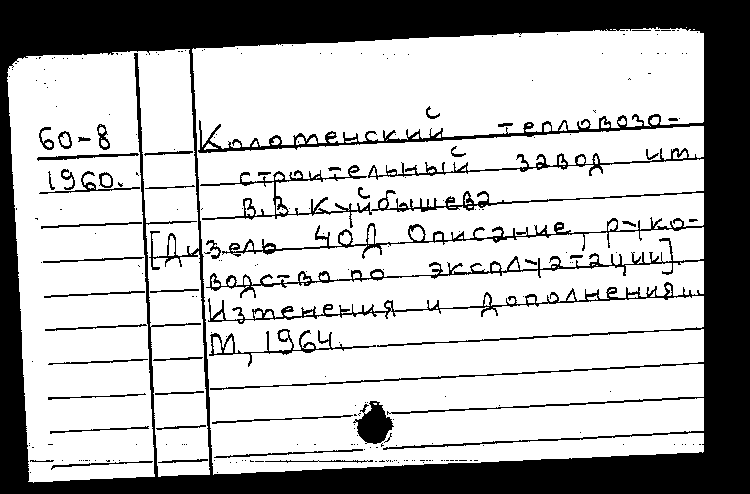 60-8
Коломенский тепловозо-
1960.
строительный завод им.
В.В. Куйбышева.
[Дизель 40Д. Описание, руко-
водство по эксплуатации].
Изменения и дополнения...
М., 1964.